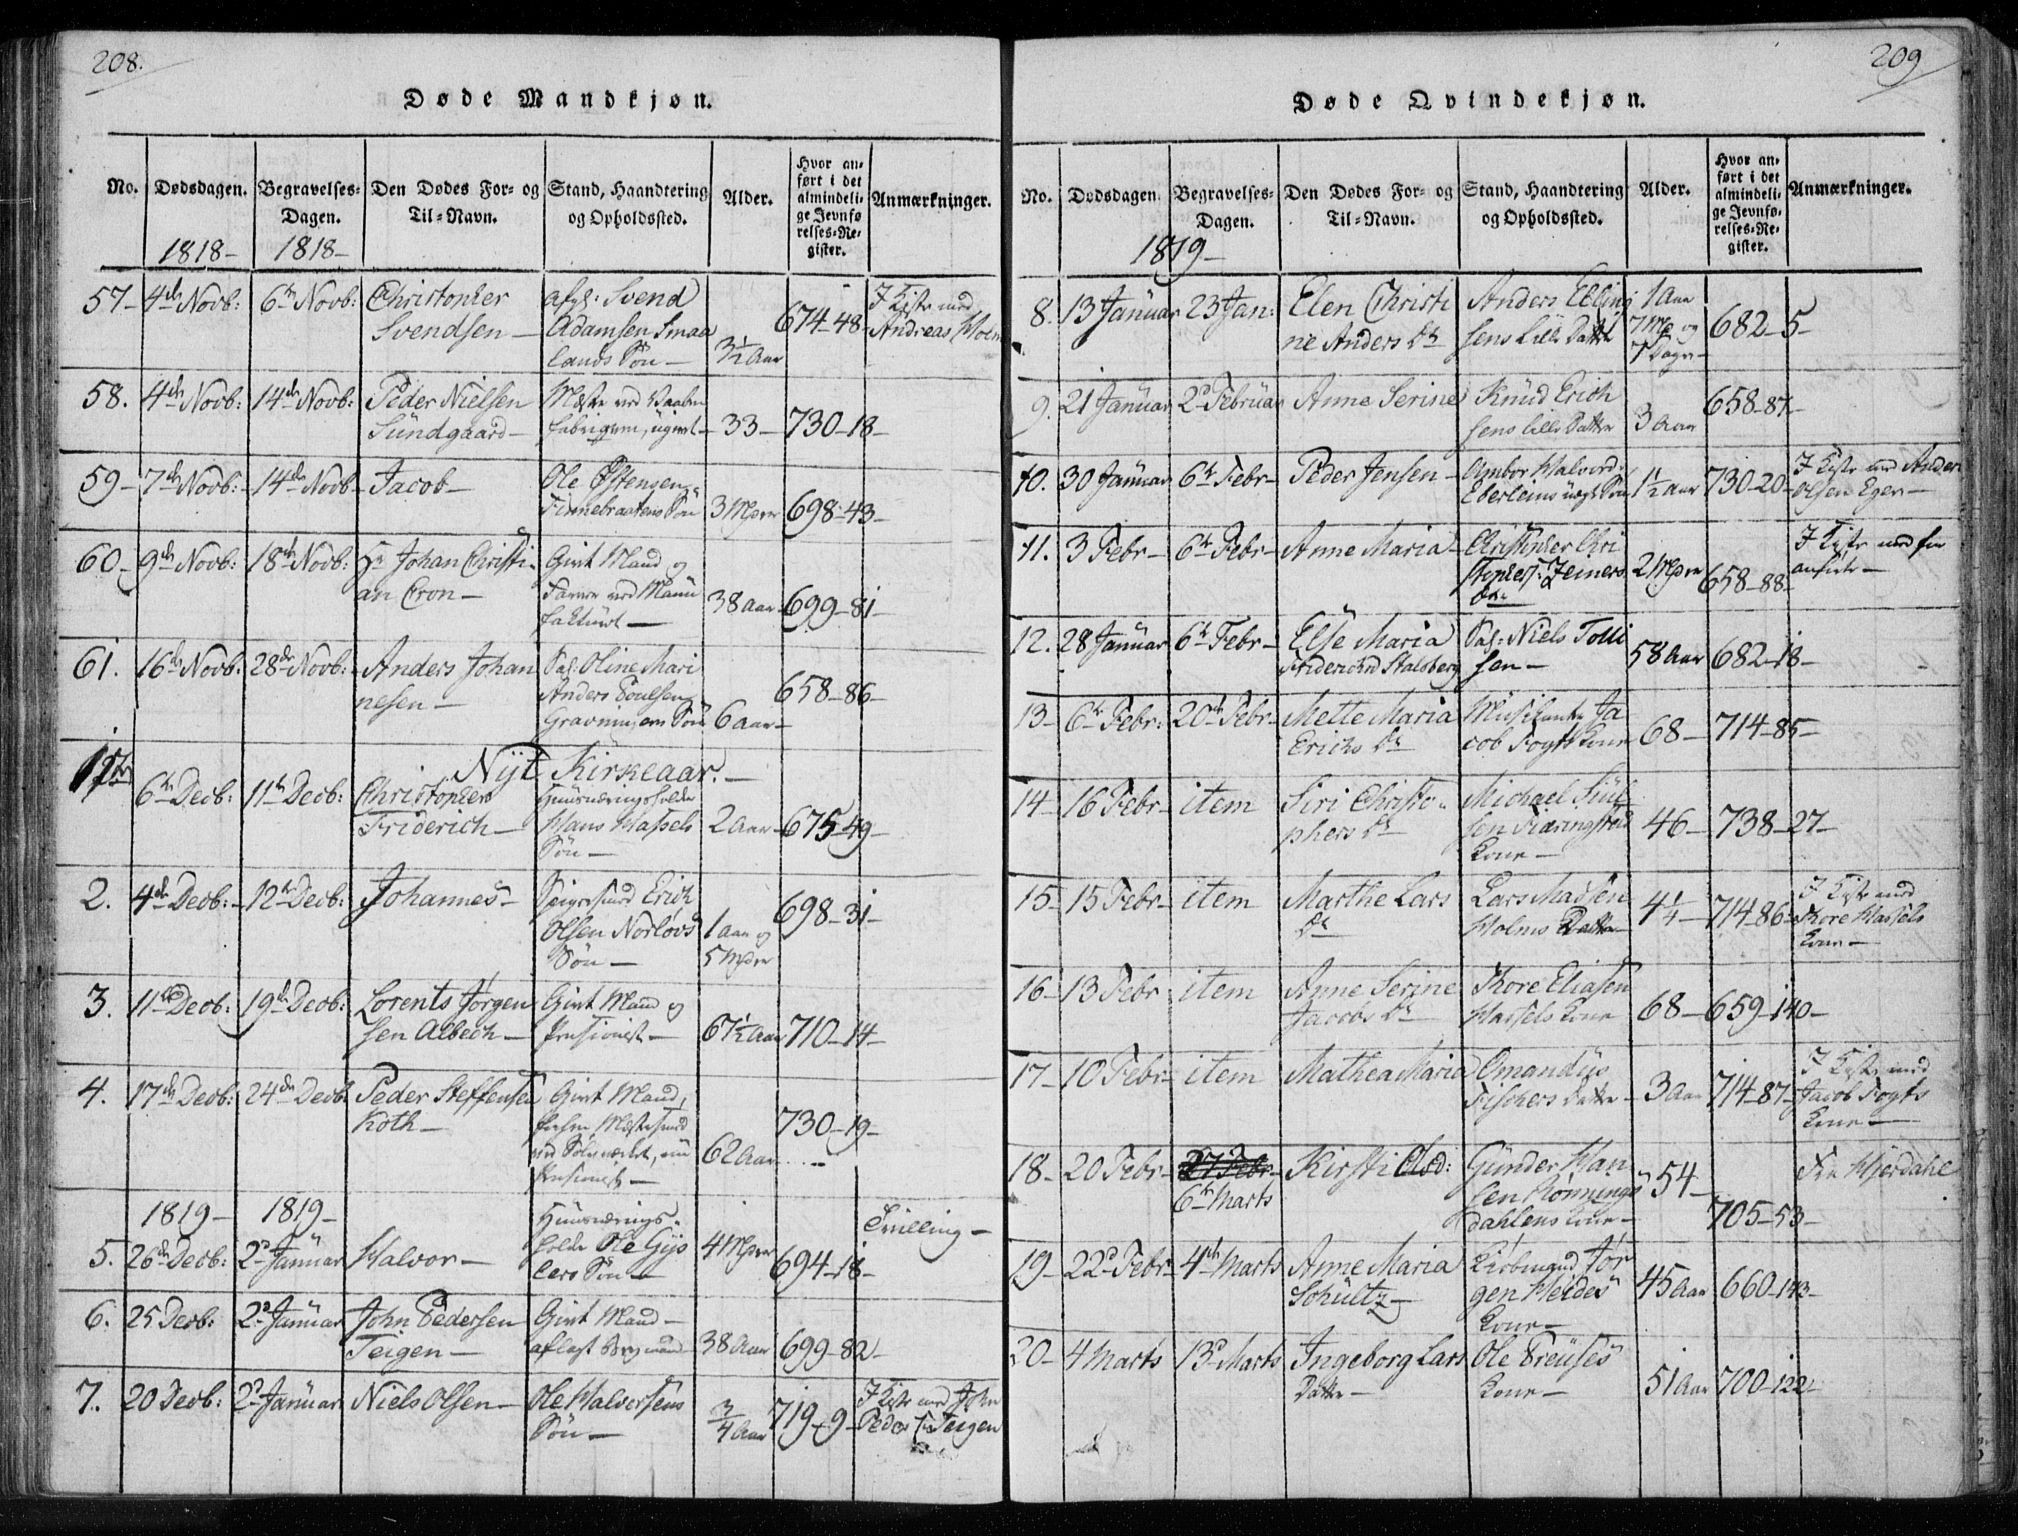 208.
Døde Mandkjøn.
No.
Dødsdagen.
Begravelses-
Dagen.
Den Dødes For- og
Til-Navn.
Stand, Haandtering
og Opholdssted.
Alder.
Hvor an-
ført i det
almindeli-
ge Jevnfø
relses-Re-
gister.
Anmærkninger.
1818-
1818-
57- 4de Novb: 6te Novb: Christopher
Svendsen-
afg: Svend
Adamsen Smaa
lands Søn-
3½ Aar
674-48-
I Kiste med
Andreas
58. 4de Novb: 14de Novb: Peder Nielsen
Sundgaard-
Mester ved Vaaben
fabriqven, ugivt-
33-
730-18-
59- 7de Novb:- 14de Novb- Jacob-
Ole Østensen
Finnebraatens Søn
3 Mdr
698-43-
60- 9de Novb: 18de Novb: Hr Johan Christi-
an Cron-
Givt Mand og
ved Manu
fakturet-
38 Aar-
699-81-
61. 16de Novb: 28de Novb:- Anders Johan
nesen-
Sal: Oline Mari
Anders Poulsen
Gravningens Søn
6 Aar-
658-86-
Nyt Kirkeaar.-
6te Decb: 11te Decb: Christopher
Friderich-
Huusnæringsholder
Hans Hassels
Søn-
2 Aar-
675-49-
2. 4de Decb:- 12te Decb: Johannes-
Erich
Olsen Norløvs
Søn-
1 Aar og
5 Mdr
698-31-
3. 11te Decb: 19de Decb: Lorents Jørgen
sen Albech-
Givt Mand og
Pensionist-
67½ Aar
710-14-
4. 17de Decb: 24de Decb: Peder Steffensen
Koth-
Givt Mand,
ved Sølvværket, nu
Pensionist-
62 Aar
730-19-
1819-
1819-
5. 26de Decb: 2d Januar Halvor-
Huusnærings-
holder Ole Gys
lers Søn-
4 Mdr
694-18-
Tvilling-
6. 25 Decb: 2d Januar John Pedersen
Teigen-
Givt Mand-
aflagt Bergmand
38 Aar
699-82-
7. 20 Decb: 2d Januar Niels Olsen-
Ole Halvorsens
Søn-
¾ Aar
719-9-
I Kiste med John
Peders: Teigen
209
Døde Qvindekjøn.
No.
Dødsdagen.
Begravelses-
Dagen.
Den Dødes For- og
Til-Navn.
Stand, Haandtering
og Opholdssted.
Alder.
Hvor an-
ført i det
almindeli-
ge Jevnfø-
relses-Re-
gister.
Anmærkninger.
1819-
8. 13 Januar 23 Jan: Elen Christi
ne Anders Dr
Anders Elling
sens lille Datter
1 Aar
7 Mdr og
7 Dage-
682-5-
9. 21 Januar 2d Februar Anne Serine
Knud Erich
sens lille Datter
3 Aar
658-87-
10. 30 Januar 6te Febr- Peder Jensen-
Ambor Halvord:
Eberleins uægte Søn
1½ Aar
730-20-
I Kiste med Anders
Olsen Eger-
11. 3 Febr- 6te Febr- Anne Maria-
Christopher Chri
stophers: Zeiners
Dr-
2 Mdr
658-88-
I Kiste med
12. 28 Januar 6te Febr- Else Maria
Friderichsd Stalsberg
Sal: Niels Tolli
sen-
58 Aar
682-18-
13- 6te Febr: 20de Febr- Mette Maria
Erichs Dr
Musikanter Ja
cob Fogts Kone
68-
714-85-
14- 16 Febr- item Siri Christo-
phers Dr
Michael Juul
sen
Kone-
46-
738-27-
15- 15 Febr- item Marthe Lars
Dr
Lars Madsen
Holms Datter
4¼-
714-86-
I Kiste med
Thore Hassels
Kone-
16- 13 Febr item Anne Serine
Jacobs Dr
Thore Eliasen
Hassels Kone
68-
659-140-
17- 10 Febr- item Mathea Maria
Omandus
Fischers Datter-
3 Aar
714-87-
I Kiste med
Jacob Fogts
Kone-
18- 20 Febr- 27 Febr-
6te Marts
Kirsti Olsd:
Gunder Han
sen Rønnings
dahlens Kone-
54-
705-53-
Fra Hjerdahl
19- 22d Febr- 4de Marts Anne Maria
Schultz-
Kiøbmand Jør
gen Heides
Kone-
45 Aar
660-143-
20- 4 Marts 13d Marts Ingeborg Lars
Datter-
Ole Preuses
Kone-
51 Aar
700-122-